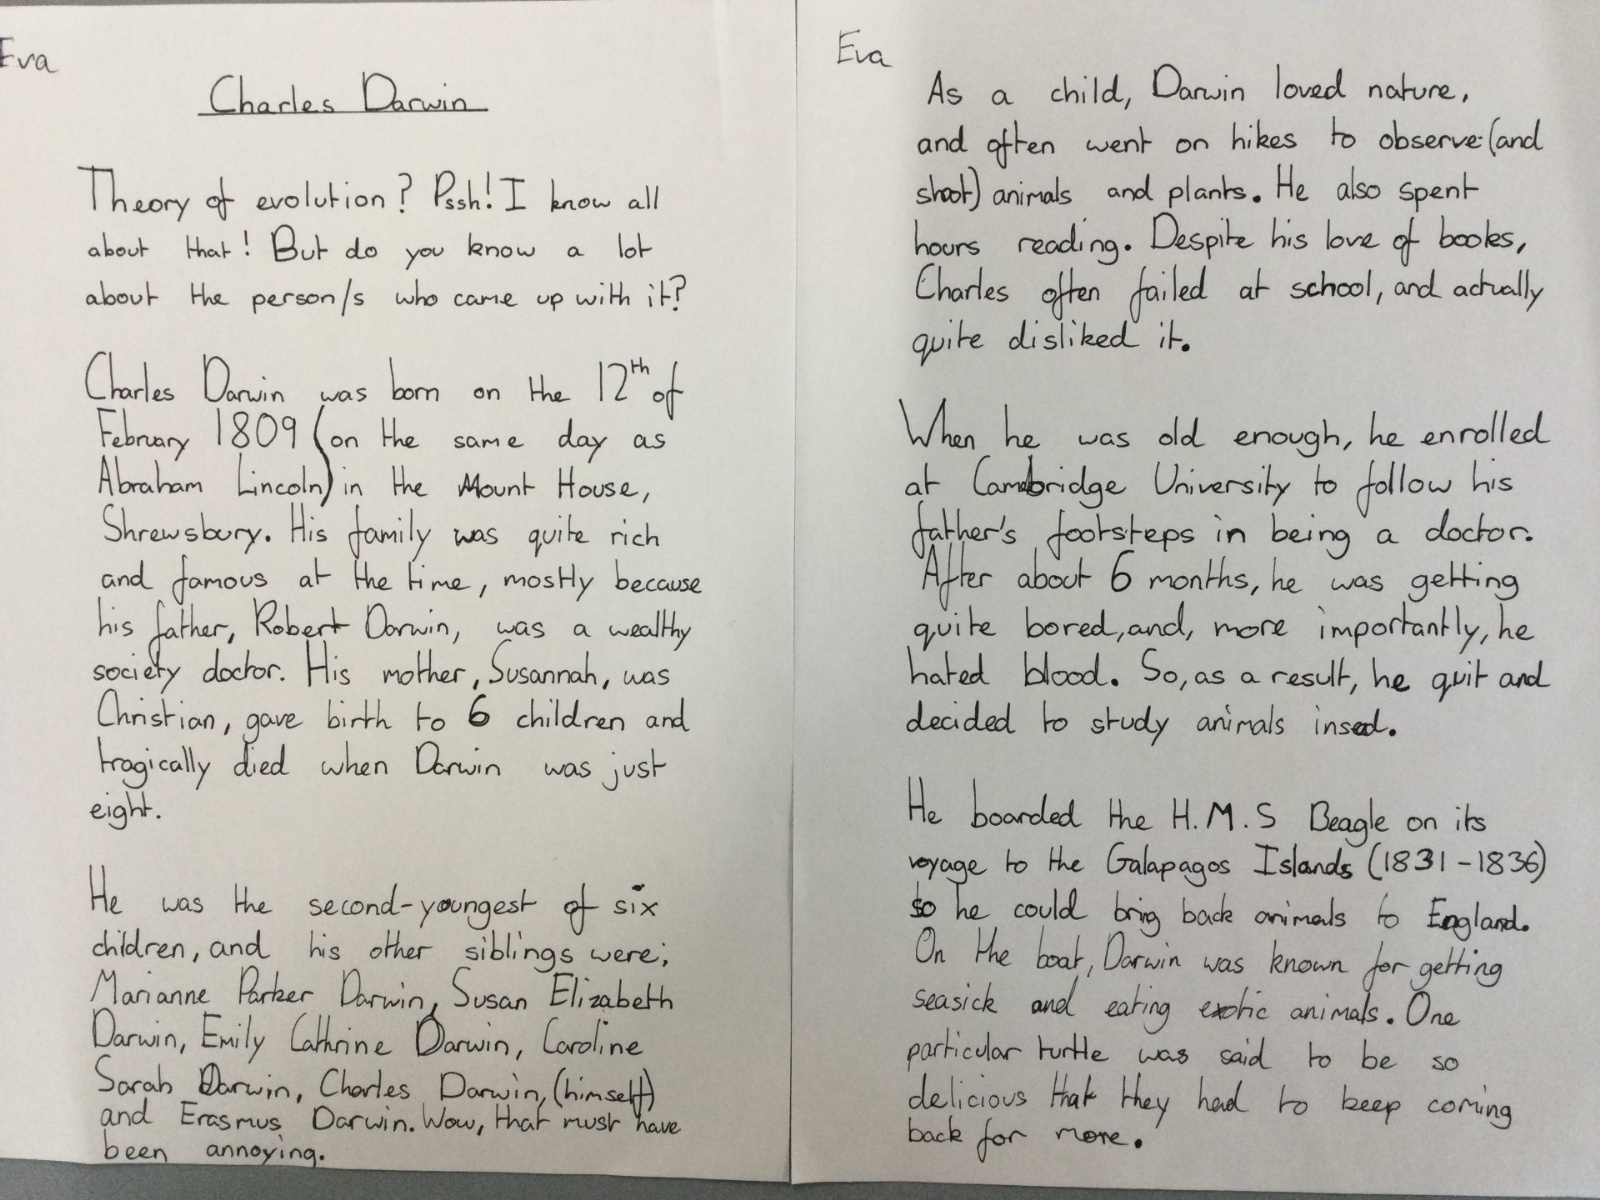 Eva
Charles Darwin
Theory of evolution? Pssh! I know all
about that! But do you know a lot
about the person/s who came up with it?
Charles Darwin was born on the 12th of
February 1809 (on the same day as
Abraham Lincoln) in the Mount House,
Shrewsbury. His family was quite rich
and famous at the time, mostly because
his father, Robert Darwin, was a wealthy
society doctor. His mother, Susannah, was
Christian, gave birth to 6 children and
tragically died when Darwin was just
eight.
He was the second-youngest of six
children, and his other siblings were;
Marianne Parker Darwin, Susan Elizabeth
Darwin, Emily Cathrine Darwin, Caroline
Sarah Darwin, Charles Darwin, (himself)
and Erasmus Darwin. Wow, that must have
been annoying.
Eva
As a child, Darwin loved nature,
and often went on hikes to observe (and
shoot) animals and plants. He also spent
hours reading. Despite his love of books,
Charles often failed at school, and actually
quite disliked it.
When he was old enough, he enrolled
at Cambridge University to follow his
father's footsteps in being a doctor.
After about 6 months, he was getting
quite bored, and, more importantly, he
hated blood. So, as a result, he quit and
decided to study animals insead.
He boarded the H.M.S Beagle on its
voyage to the Galapagos Islands (1831-1836)
so he could bring back animals to England.
On the boat, Darwin was known for getting
seasick and eating exotic animals. One
particular turtle was said to be so
delicious that they had to keep coming
back for more.